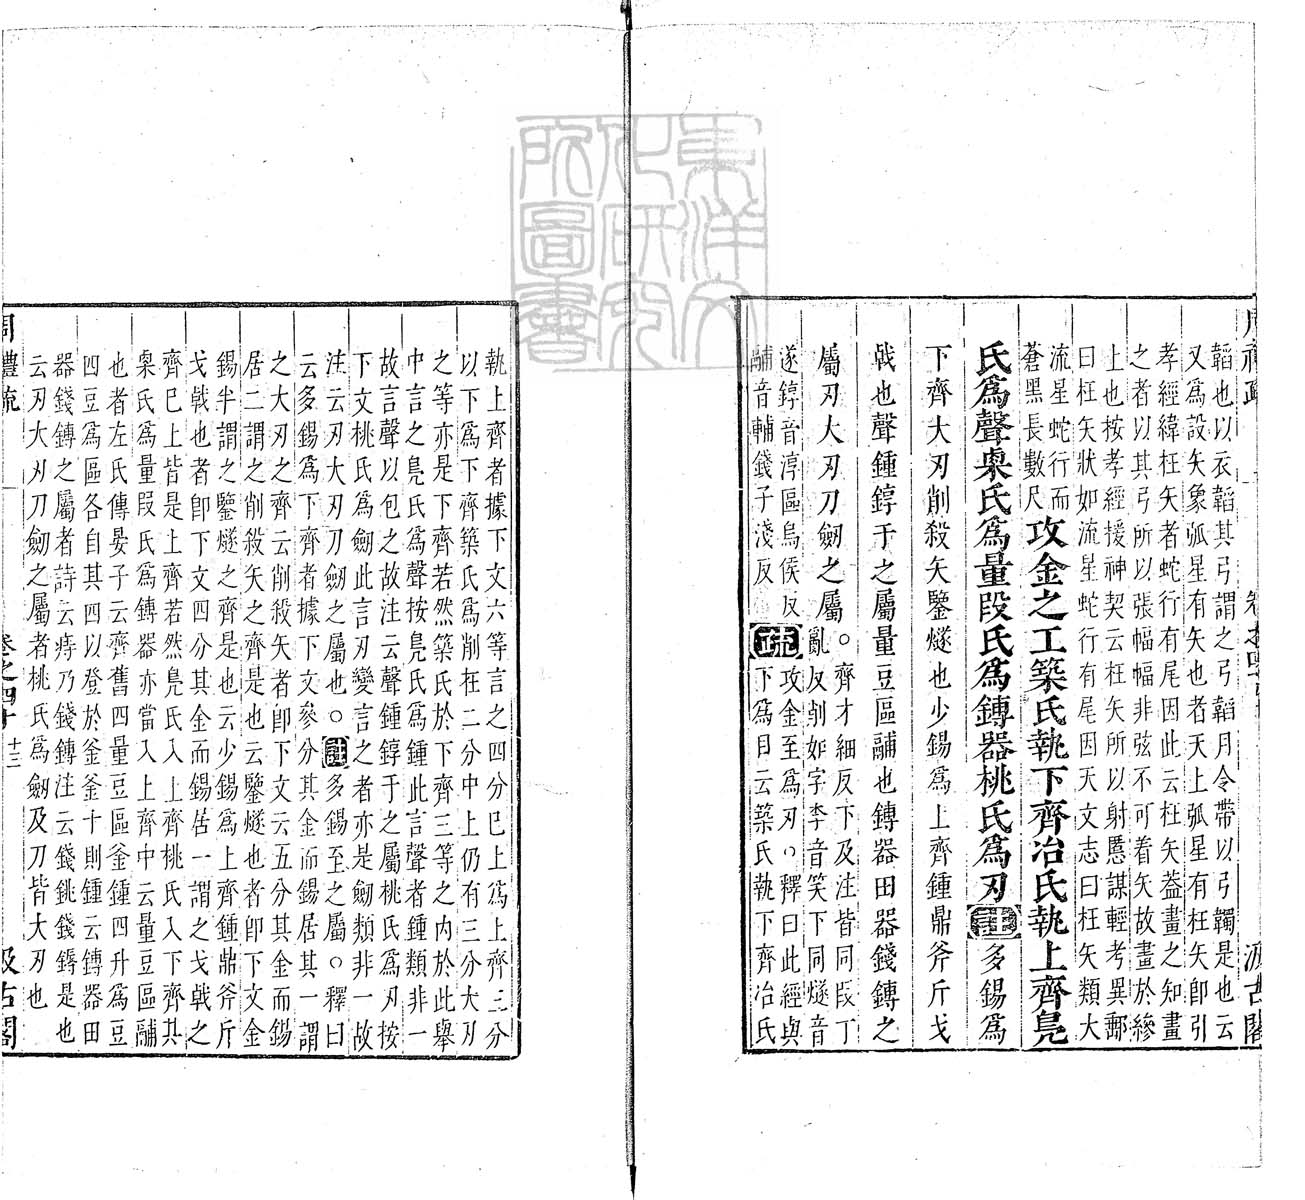 韜也以衣韜其弓謂之弓韜月令帶以弓韣是也云
又爲設矢象弧星有矢也者天上弧星有枉矢卽引
孝經緯枉矢者蛇行有尾因此云枉矢葢畫之知畫
之者以其弓所以張幅幅非弦不可着矢故畫於縿
上也按孝經援神契云枉矢所以射慝謀輕考異郵
曰枉矢狀如流星蛇行有尾因天文志曰枉矢類大
流星蛇行而
蒼黑長數尺
攻金之工築氏執下齊冶氏執上齊鳧
氏爲聲㮚氏爲量段氏爲鎛器桃氏爲刃註多錫爲
下齊大刃削殺矢鑒燧也少錫爲上齊鍾鼎斧斤戈
戟也聲鍾錞于之屬量豆區鬴也鎛器田器錢鎛之
屬刃大刃刀劒之屬。
齊才細反下及注皆同段丁
亂反削如字李音笑下同燧音
遂錞音淳區烏侯反
鬴音輔錢子淺反
疏
攻金至爲刃。釋曰此經與
下爲目云築氏執下齊冶氏
執上齊者據下文六等言之四分已上爲上齊三分
以下爲下齊築氏爲削在二分中上仍有三分大刃
之等亦是下齊若然築氏於下齊三等之內於此舉
中言之鳧氏爲聲按鳧氏爲鍾此言聲者鍾類非一
故言聲以包之故注云聲鍾錞于之屬桃氏爲刃按
下文桃氏爲劒此言刃變言之者亦是劒類非一故
注云刃大刃刀劒之屬也。註多錫至之屬。釋曰
云多錫爲下齊者據下文參分其金而錫居其一謂
之大刃之齊云削殺矢者卽下文云五分其金而錫
居二謂之削殺矢之齊是也云鑒燧也者卽下文金
錫半謂之鑒燧之齊是也云少錫爲上齊鍾鼎斧斤
戈戟也者卽下文四分其金而錫居一謂之戈戟之
齊巳上皆是上齊若然鳧氏入上齊桃氏入下齊其
㮚氏爲量段氏爲鎛器亦當入上齊中云量豆區鬴
也者左氏傳晏子云齊舊四量豆區釜鍾四升爲豆
四豆爲區各自其四以登於釜釜十則鍾云鎛器田
器錢鎛之屬者詩云庤乃錢鎛注云錢銚鎛鎒是也
云刃大刃刀劒之屬者桃氏爲劒及刀皆大刃也
周禮疏 卷之四十 十三 汲古閣